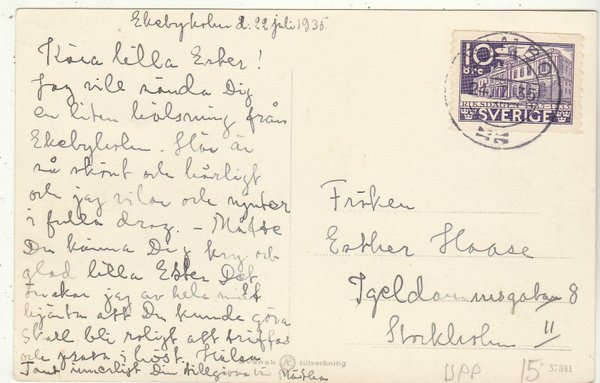 Ekebyholm d. 22 juli 1935
Kära lilla Ester!
Jag vill sända Dig
en liten hälsning från
Ekebyholm. Här är
så skönt och härligt
och jag vilar och njuter
i fulla drag. – Måtte
Du känna Dig kry och
glad lilla Ester Det
önskar jag av hela mitt
hjärta att Du kunde göra
Skall bli roligt att träffas
och prata i höst. Hälsa
Tant innerligt Din tillgivna vän Märtha
10
ÖRE
RIKSDAGEN 1435-1935
SVERIGE
24.7.35
Fröken
Esther Haase
Igeldammsgatan 8
Stockholm
Svensk Æ tillverkning
37841
UPP 15